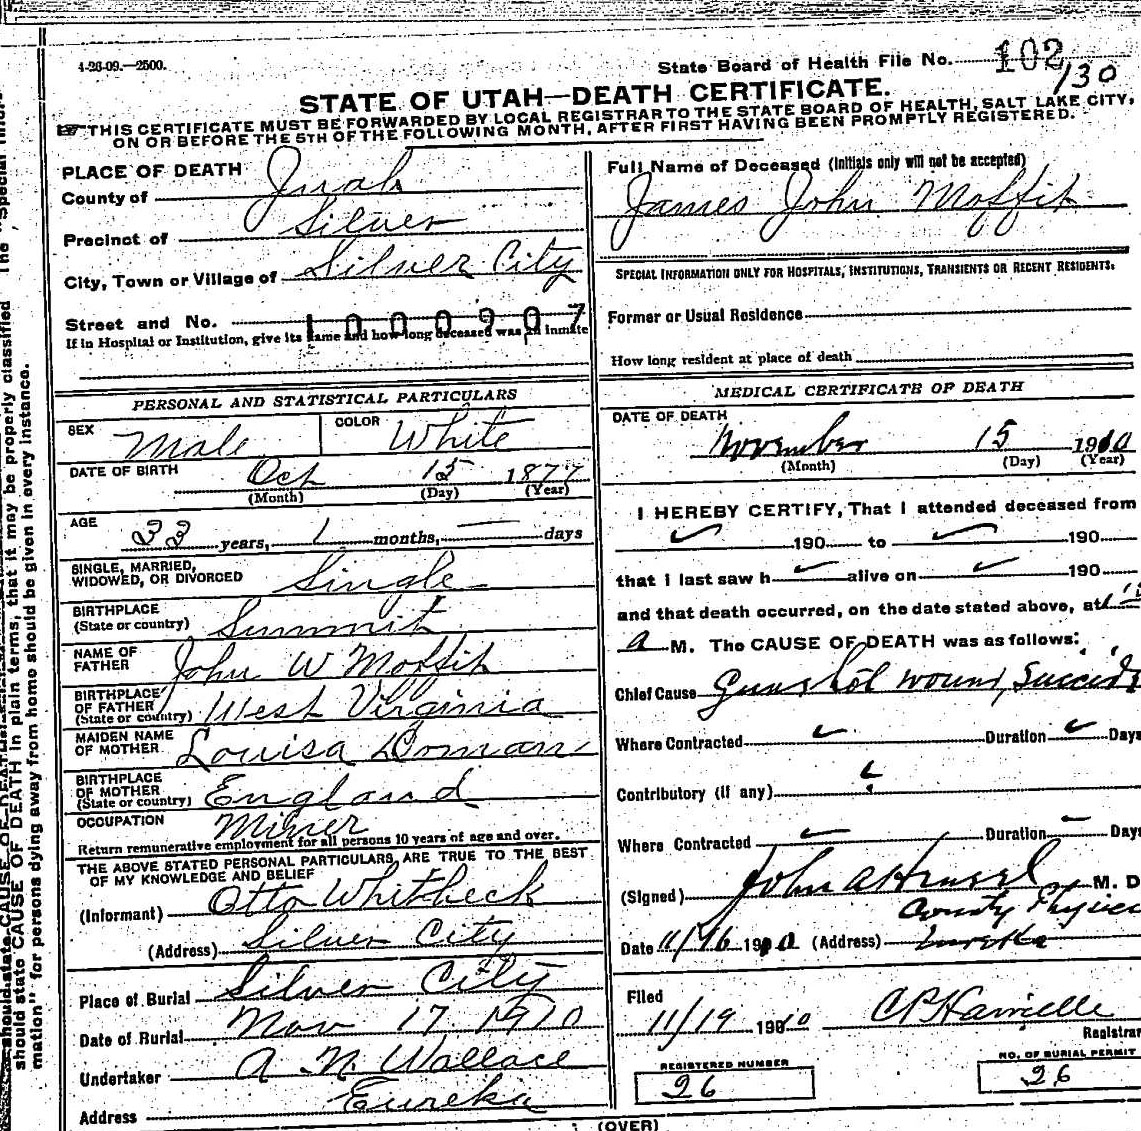 4-26-09.—2500.
State Board of Health File No. 102
130
STATE OF UTAH—DEATH CERTIFICATE.
THIS CERTIFICATE MUST BE FORWARDED BY LOCAL REGISTRAR TO THE STATE BOARD OF HEALTH, SALT LAKE CITY,
ON OR BEFORE THE 5TH OF THE FOLLOWING MONTH, AFTER FIRST HAVING BEEN PROMPTLY REGISTERED.
PLACE OF DEATH
County of Juab
Precinct of Silver
City, Town or Village of Silver City
Street and No. 1000907
If in Hospital or Institution, give its name and how long deceased was an inmate
PERSONAL AND STATISTICAL PARTICULARS
SEX Male COLOR White
DATE OF BIRTH Oct 15 1877
(Month) (Day) (Year)
AGE
33 years, 1 months, — days
SINGLE, MARRIED,
WIDOWED, OR DIVORCED Single
BIRTHPLACE
(State or country) Summit
NAME OF
FATHER John W Moffit
BIRTHPLACE
OF FATHER
(State or country) West Virginia
MAIDEN NAME
OF MOTHER Louisa Doman
BIRTHPLACE
OF MOTHER
(State or country) England
OCCUPATION Miner
Return remunerative employment for all persons 10 years of age and over.
THE ABOVE STATED PERSONAL PARTICULARS ARE TRUE TO THE BEST
OF MY KNOWLEDGE AND BELIEF
(Informant) Otto Whitbeck
(Address) Silver City
Place of Burial Silver City
Date of Burial Nov 17 1910
Undertaker A. N. Wallace
Address Eureka
Full Name of Deceased (Initials only will not be accepted)
James John Moffit
SPECIAL INFORMATION ONLY FOR HOSPITALS, INSTITUTIONS, TRANSIENTS OR RECENT RESIDENTS.
Former or Usual Residence
How long resident at place of death
MEDICAL CERTIFICATE OF DEATH
DATE OF DEATH
November 15 1910
(Month) (Day) (Year)
I HEREBY CERTIFY, That I attended deceased from
190 to 190
that I last saw h alive on 190
and that death occurred, on the date stated above, at
a M. The CAUSE OF DEATH was as follows:
Chief Cause Gunshot wound, Suicide
Where Contracted Duration Days
Contributory (if any)
Where Contracted Duration Days
(Signed) John A M. D
County Physici
Date 11/16 1910 (Address) Eureka
Filed
11/19 1910
Registrar
REGISTERED NUMBER
26
NO. OF BURIAL PERMIT
26
(OVER)
should state CAUSE OF DEATH in plain terms, that it may be properly classified The "Special Infor-
mation" for persons dying away from home should be given in every instance.